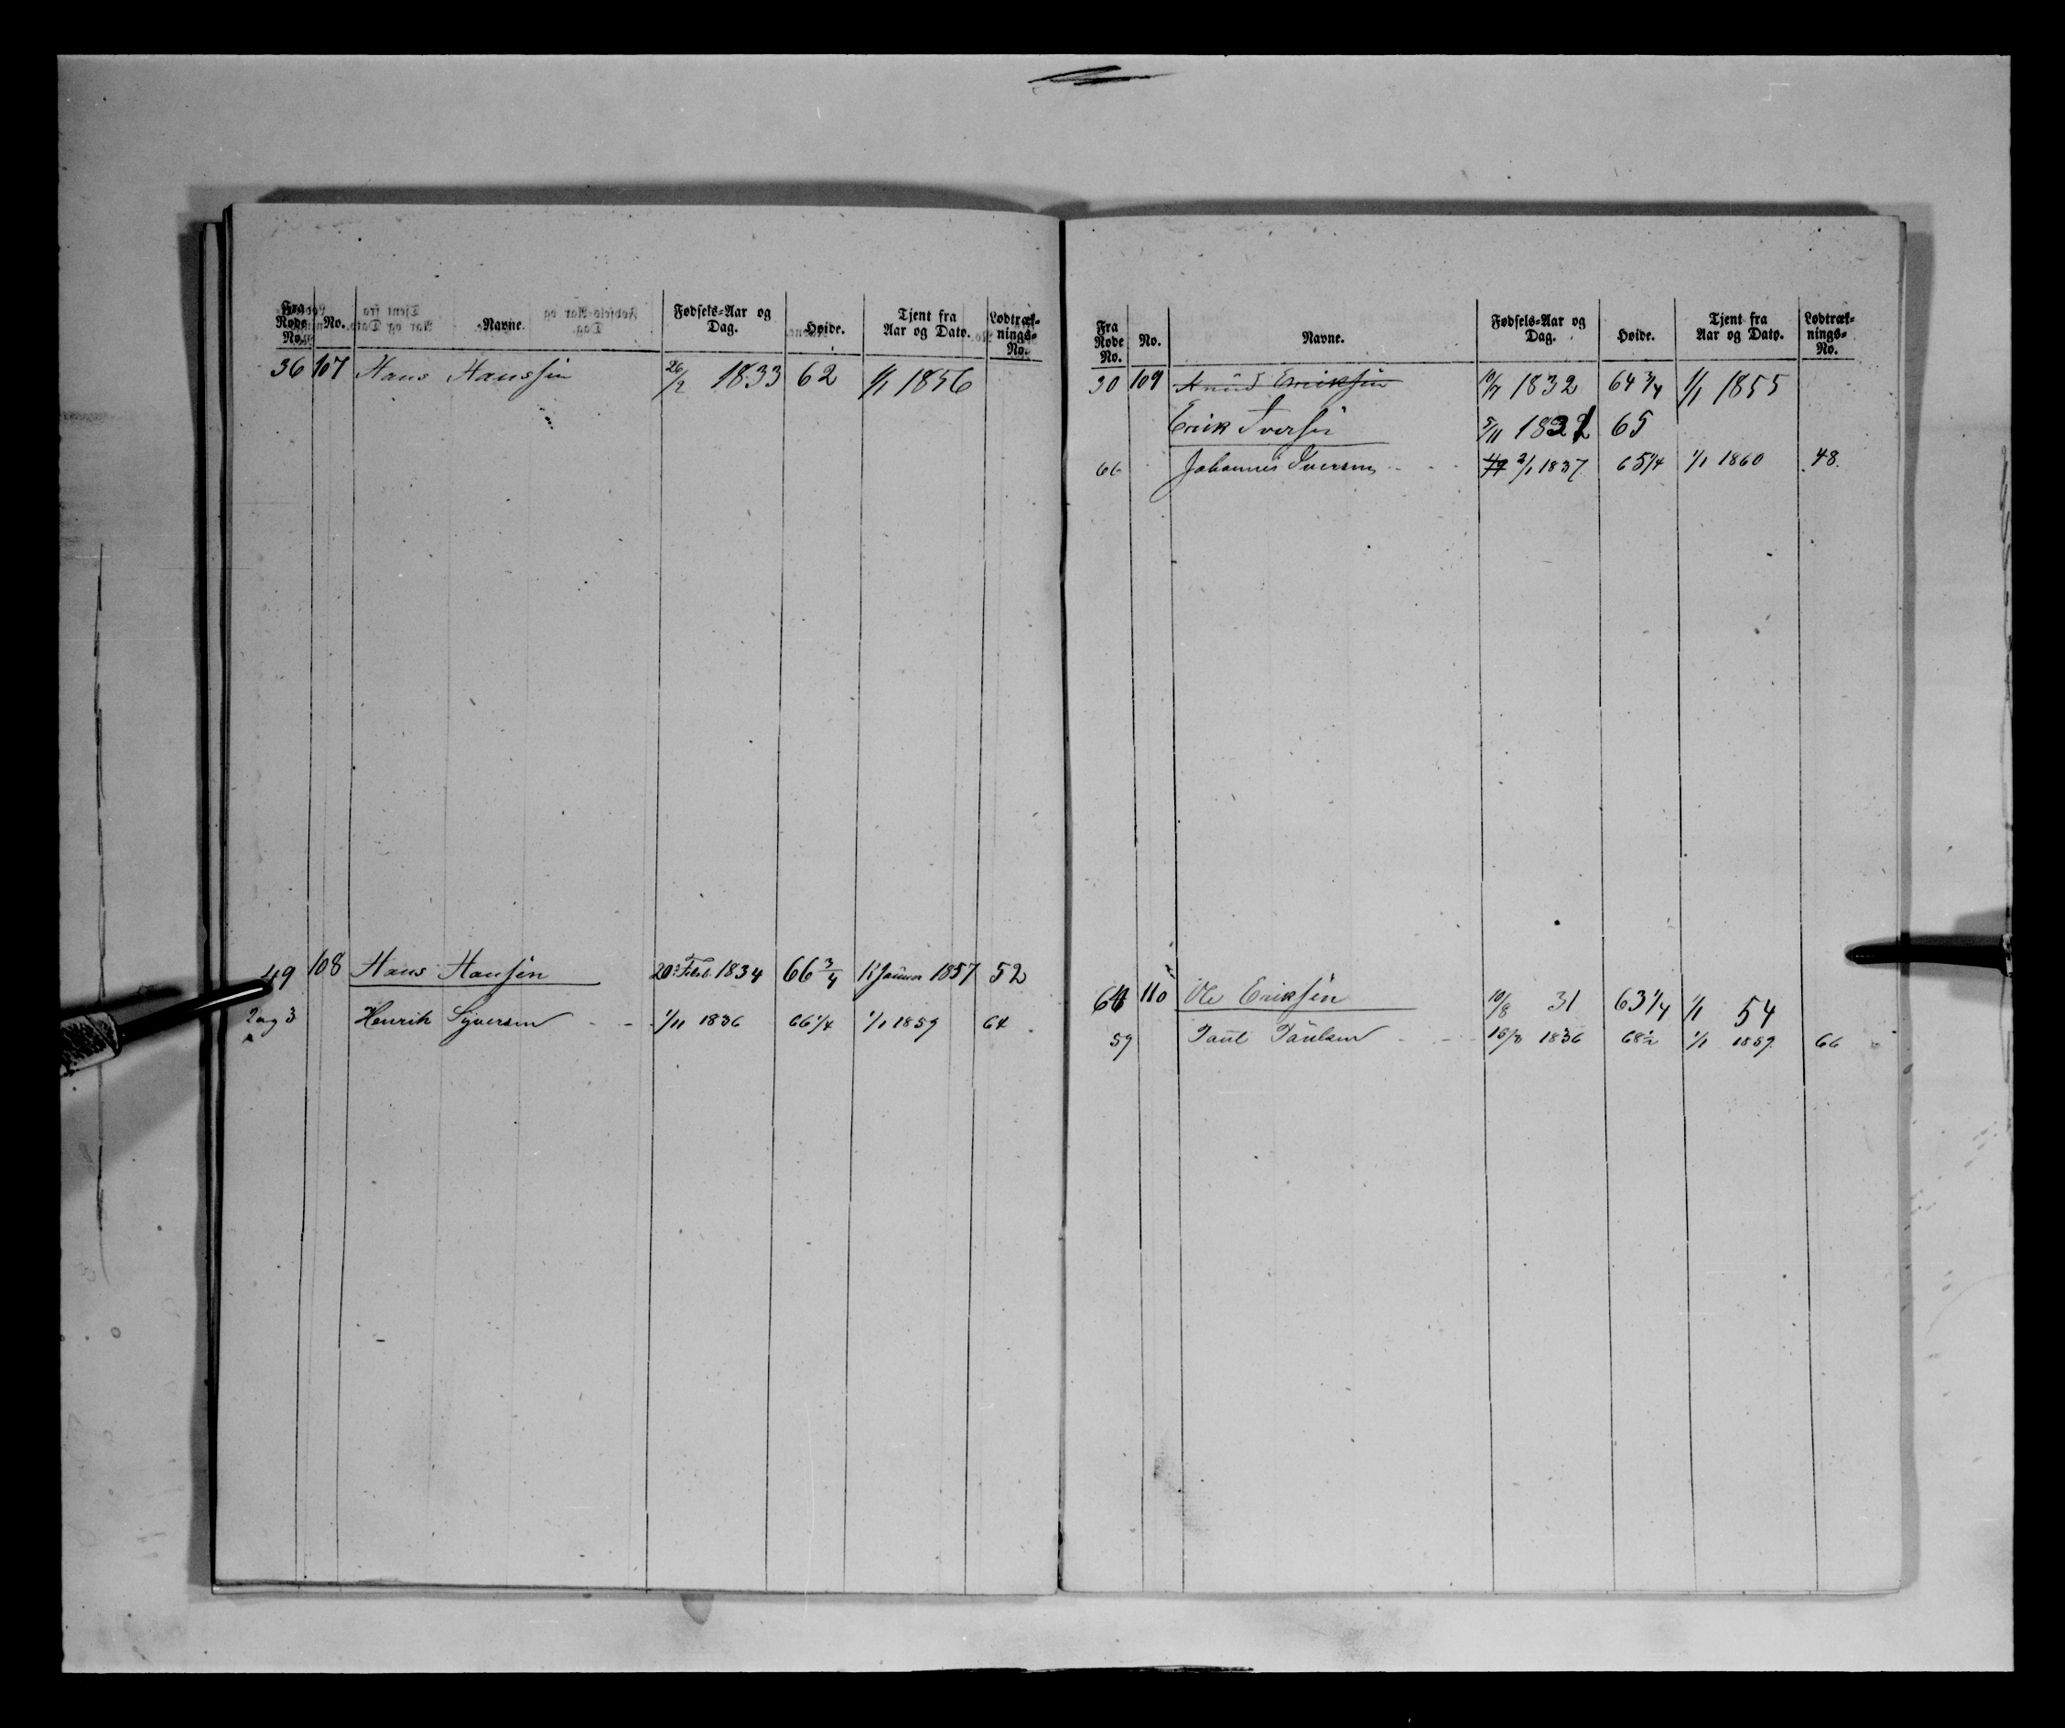 Fra Rode No. No. Navne. Fødsels-Aar og Dag. Høide. Tjent fra Aar og Dato. Lodtræk-nings-No.
36 107 Hans Hanssen 26/2 1833 62 1/1 1856
49 108 Hans Hansen 20: Febr. 1834 66 3/4 1: Januar 1857 52
2 og 3 Henrik Syversen - - 1/11 1836 66 1/4 1/1 1859 64
Fra Rode No. No. Navne. Fødsels-Aar og Dag. Høide. Tjent fra Aar og Dato. Lodtræk-nings-No.
30 109 Knud Ericksen 10/7 1832 64 3/4 1/1 1855
Erick Iversen 5/11 65
66 Johannes Iversen - - 2/1 1837 65 1/4 1/1 1860 48.
110 Ole Eriksen 10/8 31 63 1/4 1/1 54
59 Paul Paulsen - - - 16/8 1836 68 1/2 1/1 1859 66